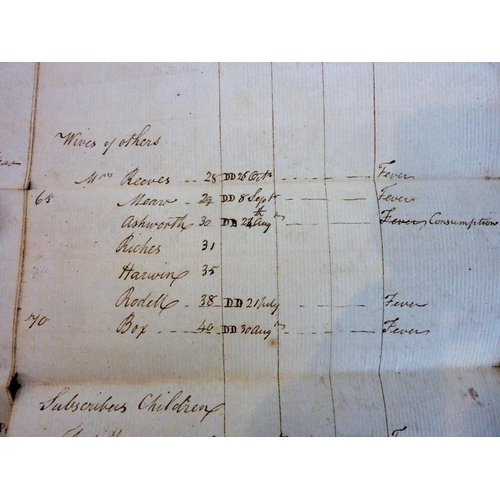 Wives of others
Mrs Reeves 28 DD 26 Octr Fever
65 Mears 29 DD 8 Septr Fever
Ashworth 30 DD 24th Augt Fever Consumption
Riches 31
Harwin 35
Rodell 38 DD 21 July Fever
70 Box 40 DD 30 Augt Fever
Subscribers Children